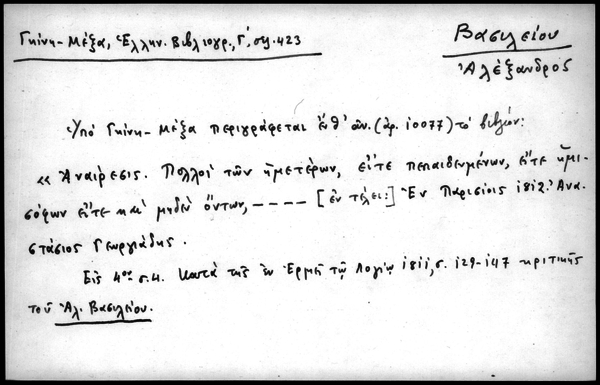 Γκίνη-Μέξα, Ἑλλην. Βιβλιογρ., Γ΄, σελ. 423
Βασιλείου
Ἀλέξανδρος
Ὑπό Γκίνη-Μέξα περιγράφεται ἐνθ' ἀν. (ἀρ. 10077) τό βιβλίον:
« Ἀναίρεσις. Πολλοί τῶν ἡμετέρων, εἴτε πεπαιδευμένων, εἴτε ἡμι-
σόφων εἴτε καί μηδέν ὄντων, ---- [ἐν τέλει:] Ἐν Παρισίοις 1812. Ἀνα-
στάσιος Γεωργιάδης.
Εἰς 4ον σ. 4. Κατά τῆς ἐν Ἑρμῇ τῷ Λογίῳ 1811, σ. 129-147 κριτικῆς
τοῦ Ἀλ. Βασιλείου.